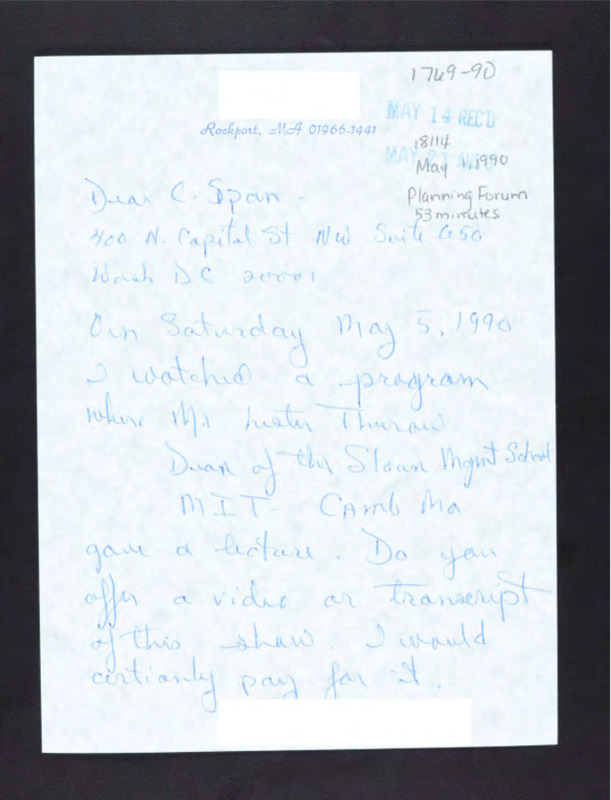 1769-90
Rockport, MA 01966-1441
MAY 14 REC'D
18114
MAY 21
May 1, 1990
Planning Forum
53 minutes
Dear C-Span -
400 N. Capital St NW Suite 650
Wash DC 20001
On Saturday May 5, 1990
I watched a program
where Mr Lester Thurow
Dean of the Sloan Mgmt School
MIT- CAMB Ma
gave a lecture. Do you
offer a video or transcript
of this show. I would
certianly pay for it.